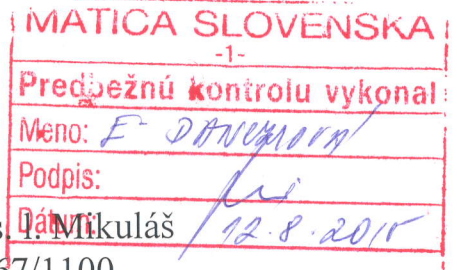 MATICA SLOVENSKA
-1-
Predbežnú kontrolu vykonal:
Meno: E.
Podpis:
Dátum: 12.8.2015
s. l. Mikuláš
67/1100